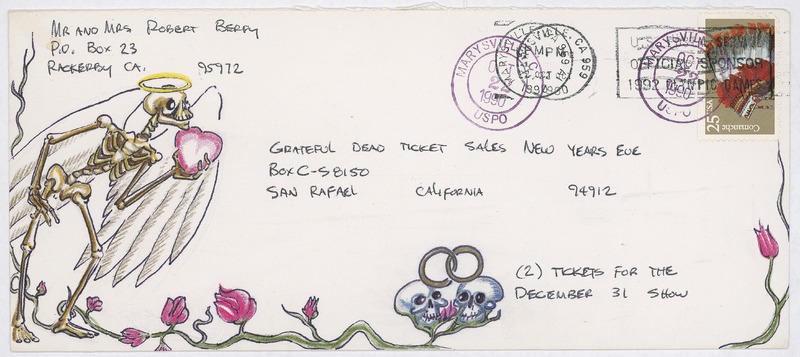 MR AND MRS ROBERT BERRY
P.O. BOX 23
RACKERBY CA. 95972
MARYSVILLE, CA
OCT
22
1990
USPO
MARYSVILLE, CA 959
PM
OCT
1990
OFFICIAL SPONSOR
1992 OLYMPIC GAMES
MARYSVILLE
22
1990
USPO
25
USA
Comanche
GRATEFUL DEAD TICKET SALES NEW YEARS EVE
BOX C-S 8150
SAN RAFAEL CALIFORNIA 94912
(2) TICKETS FOR THE
DECEMBER 31 SHOW